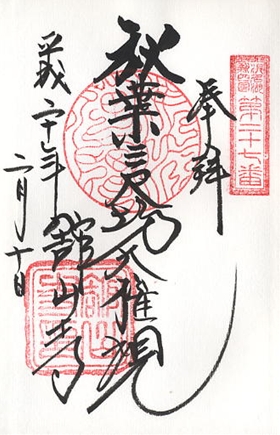 第二十七番
奉拝
秋葉三尺坊大権現
舘山寺
平成二十年
二月十日